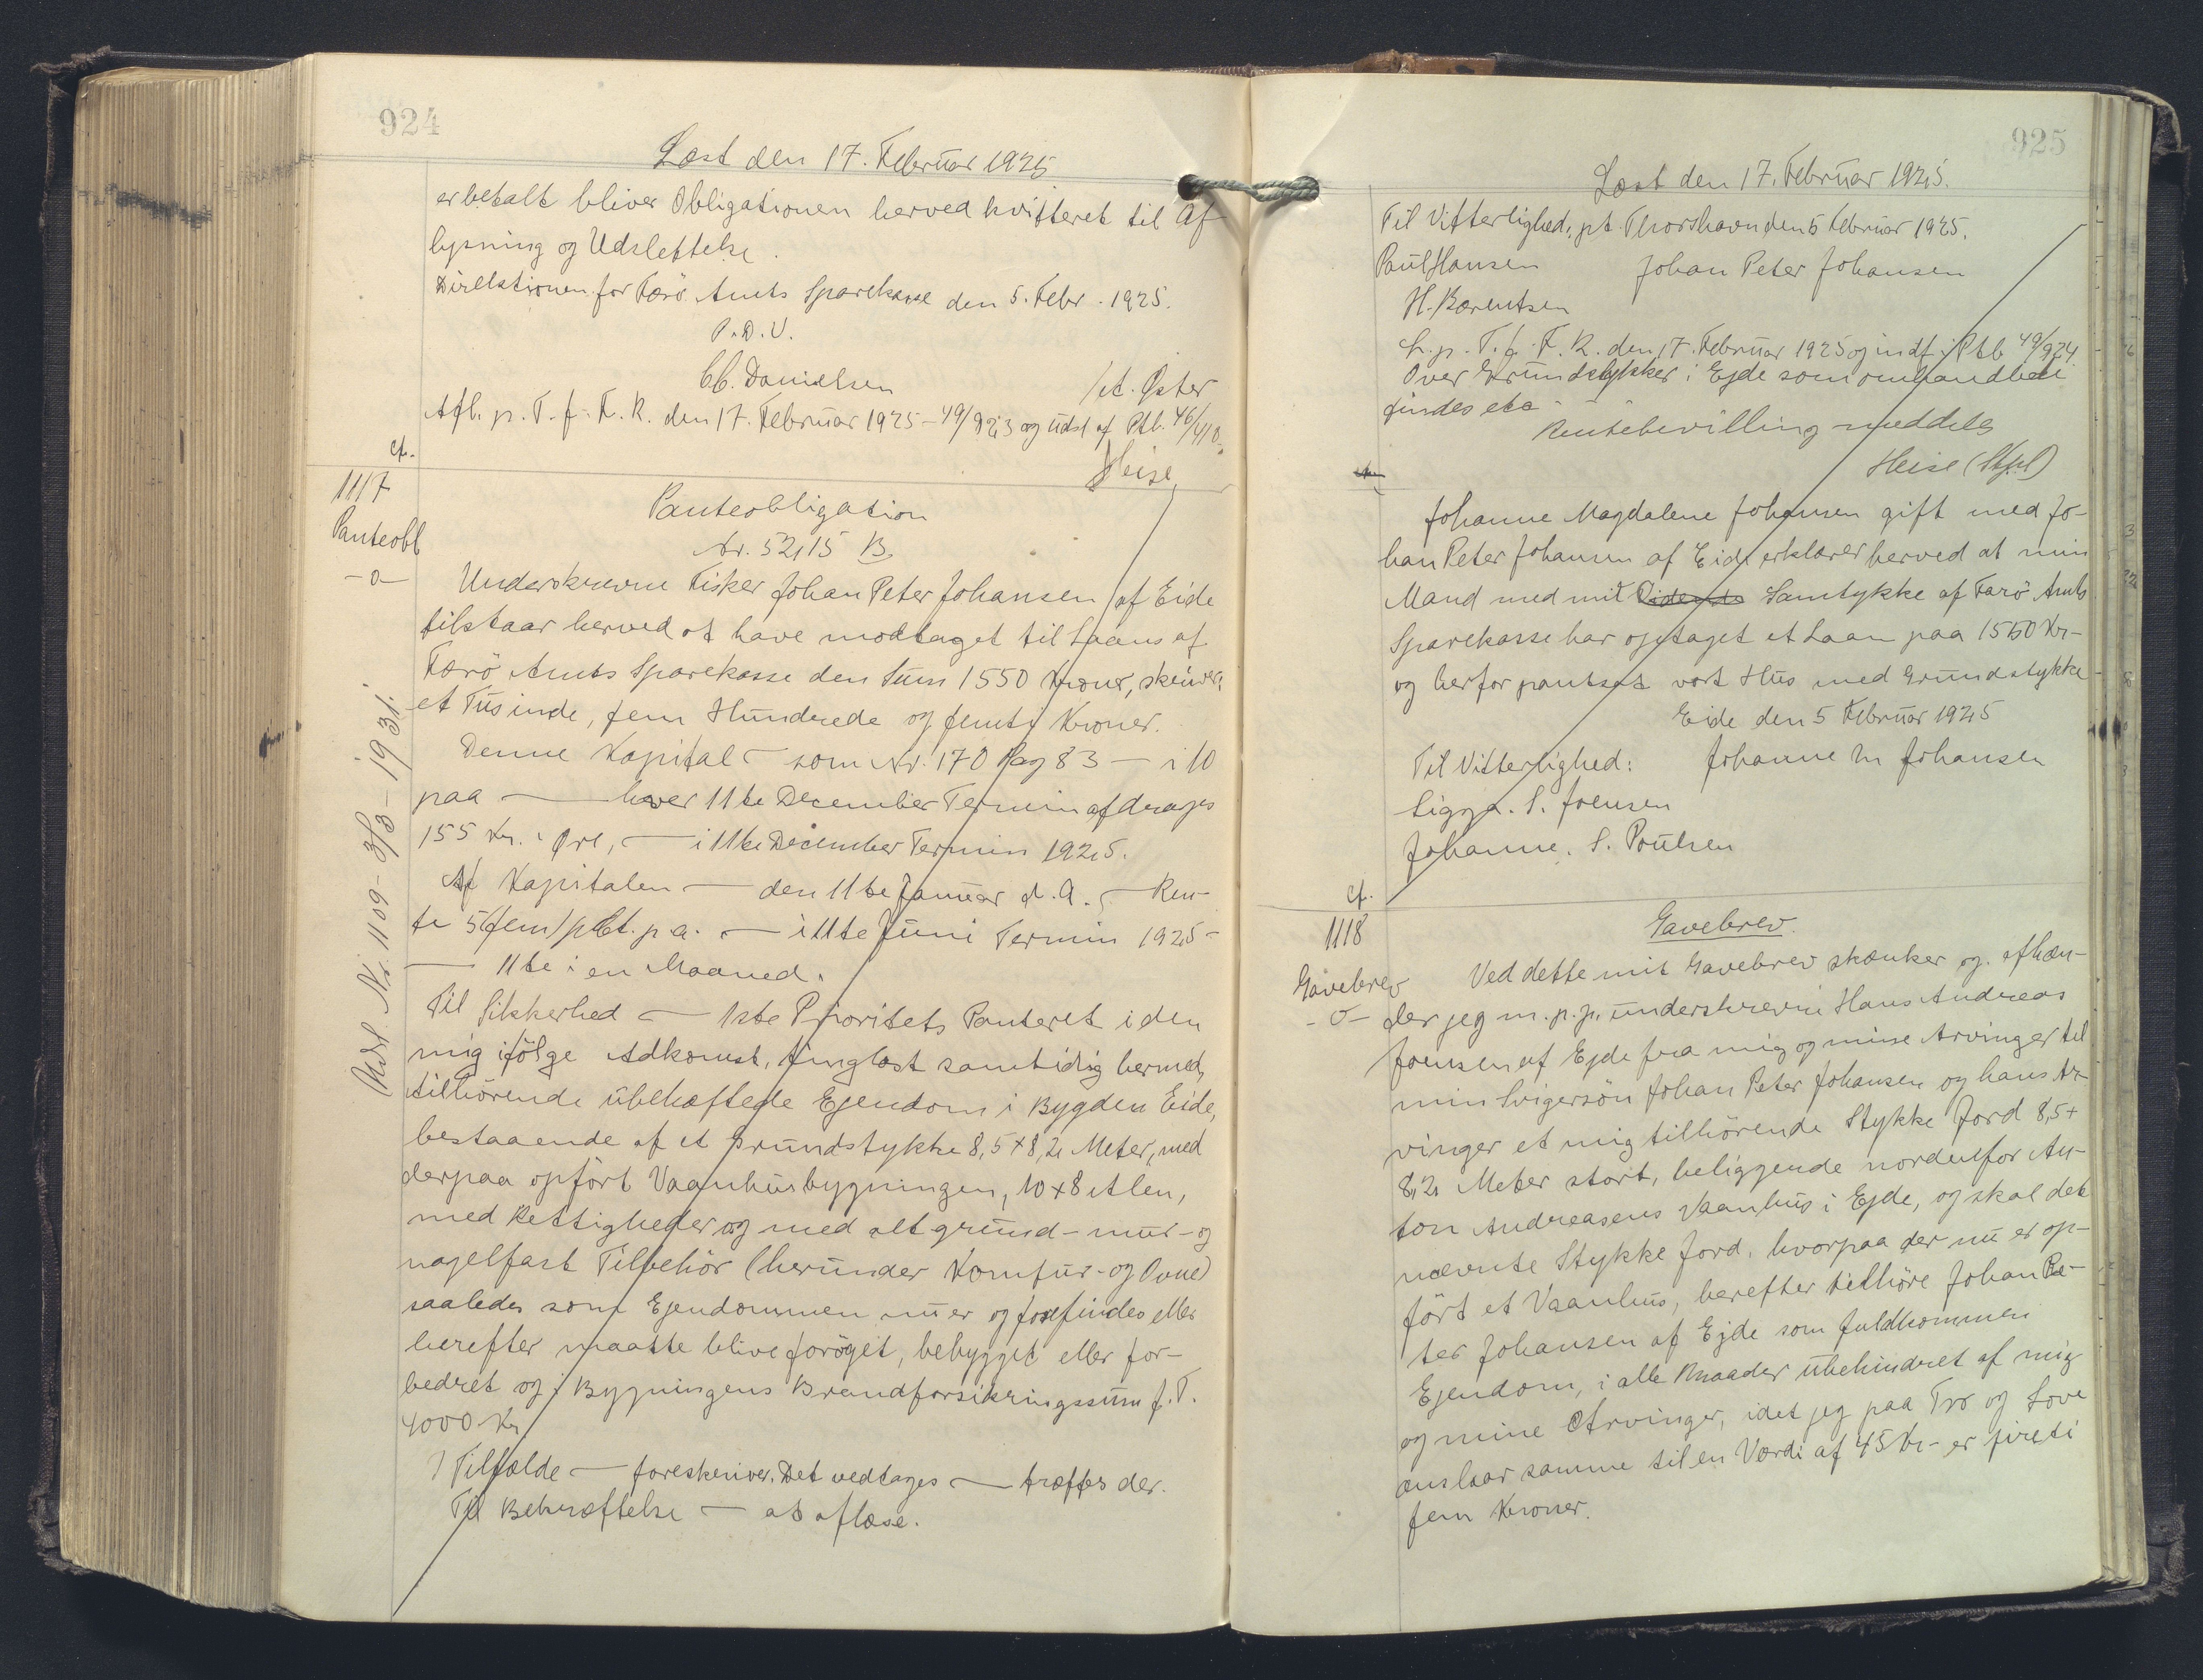 924
Læst den 17. Februar 1925
er betalt bliver Obligationen herved kvitteret til Af-
lysning og Udslettelse.
Direktionen for Færö Amts Sparekasse den 5. Febr. 1925.
P. D. V.
Cb. Danielsen
Øster
Afl. p. T. f. F. R. den 17. Februar 1925 - 49/923 og udsl af Ptb. 46/410.
Heise
cf.
1117
Panteobl
-o-
Panteobligation
Nr. 5215 B.
Underskrevne Fisker Johan Peter Johansen af Eide
tilstaar herved at have modtaget til Laans af
Færö Amts Sparekasse den Sum 1550 Kroner, skriver
et Tusinde, fem Hundrede og femty Kroner.
Denne Kapital — som Nr. 170 Pag 83 — i 10
paa — hver 11te December Termin afdrages
155 Kr. " Øre, — i 11te December Termin 1925.
Af Kapitalen — den 11te Januar d. A. — Ren-
te 5 (fem) pCt. p. a. — i 11te Juni Termin 1925 -
— 11te i en Maaned.
Til Sikkerhed — 1ste Prioritets Panteret i den
mig ifölge Adkomst, tinglæst samtidig hermed,
tilhörende ubehæftede Ejendom i Bygden Eide,
bestaaende af et Grundstykke 8,5 + 8,2 Meter, med
derpaa opfört Vaanhusbygningen, 10 + 8 Alen,
med Rettigheder og med alt grund- mur- og
nagelfast Tilbehör (herunder Komfur- og Ovne)
saaledes som Ejendommen nu er og forefindes eller
herefter maatte blive foröget, bebygget eller for-
bedret og i Bygningens Brandforsikringssum f. T.
4000 Kr
I Tilfælde — foreskriver. Det vedtages — træffes der.
Til Bekræftelse — at aflæse.
Udsl. Nr. 1109 - 3/3 - 1931.
925
Læst den 17. Februar 1925.
Til Vitterlighed, pt. Thorshavn den 5 Februar 1925.
Paul Hansen Johan Peter Johansen
H. Barentsen
L. p. T. f. F. R. den 17. Februar 1925 og indf i Ptb 49/924
Over Grundstykker i Ejde som omhandlede
findes etc
Rentebevilling meddeles
Heise (Stpl)
Johanne Magdalene Johansen gift med Jo-
han Peter Johansen af Eide erklærer herved at min
Mand med mit Samtykke af Færö Amts
Sparekasse har optaget et Laan paa 1550 Kr -
og herfor pantsat vort Hus med Grundstykke
Eide den 5 Februar 1925
Til Vitterlighed: Johanne M Johansen
Sigga. S. Joensen
Johanne. S. Poulsen
cf.
1118
Gavebrev
-o-
Gavebrev.
Ved dette mit Gavebrev skænker og afhæn-
der jeg m. p. p. underskrevne Hans Andreas
Joensen af Ejde fra mig og mine Arvinger til
min Svigersön Johan Peter Johansen og hans Ar-
vinger et mig tilhörende Stykke Jord 8,5 +
8,2 Meter stort, beliggende nordenfor An-
ton Andreasens Vaanhus i Ejde, og skal det
nævnte Stykke Jord, hvorpaa der nu er op-
fört et Vaanhus, herefter tilhöre Johan Pe-
ter Johansen af Ejde som fuldkommen
Ejendom, i alle Maader ubehindret af mig
og mine Arvinger, idet jeg paa Tro og Love
anslaar samme til en Værdi af 45 Kr - er fireti
fem Kroner.